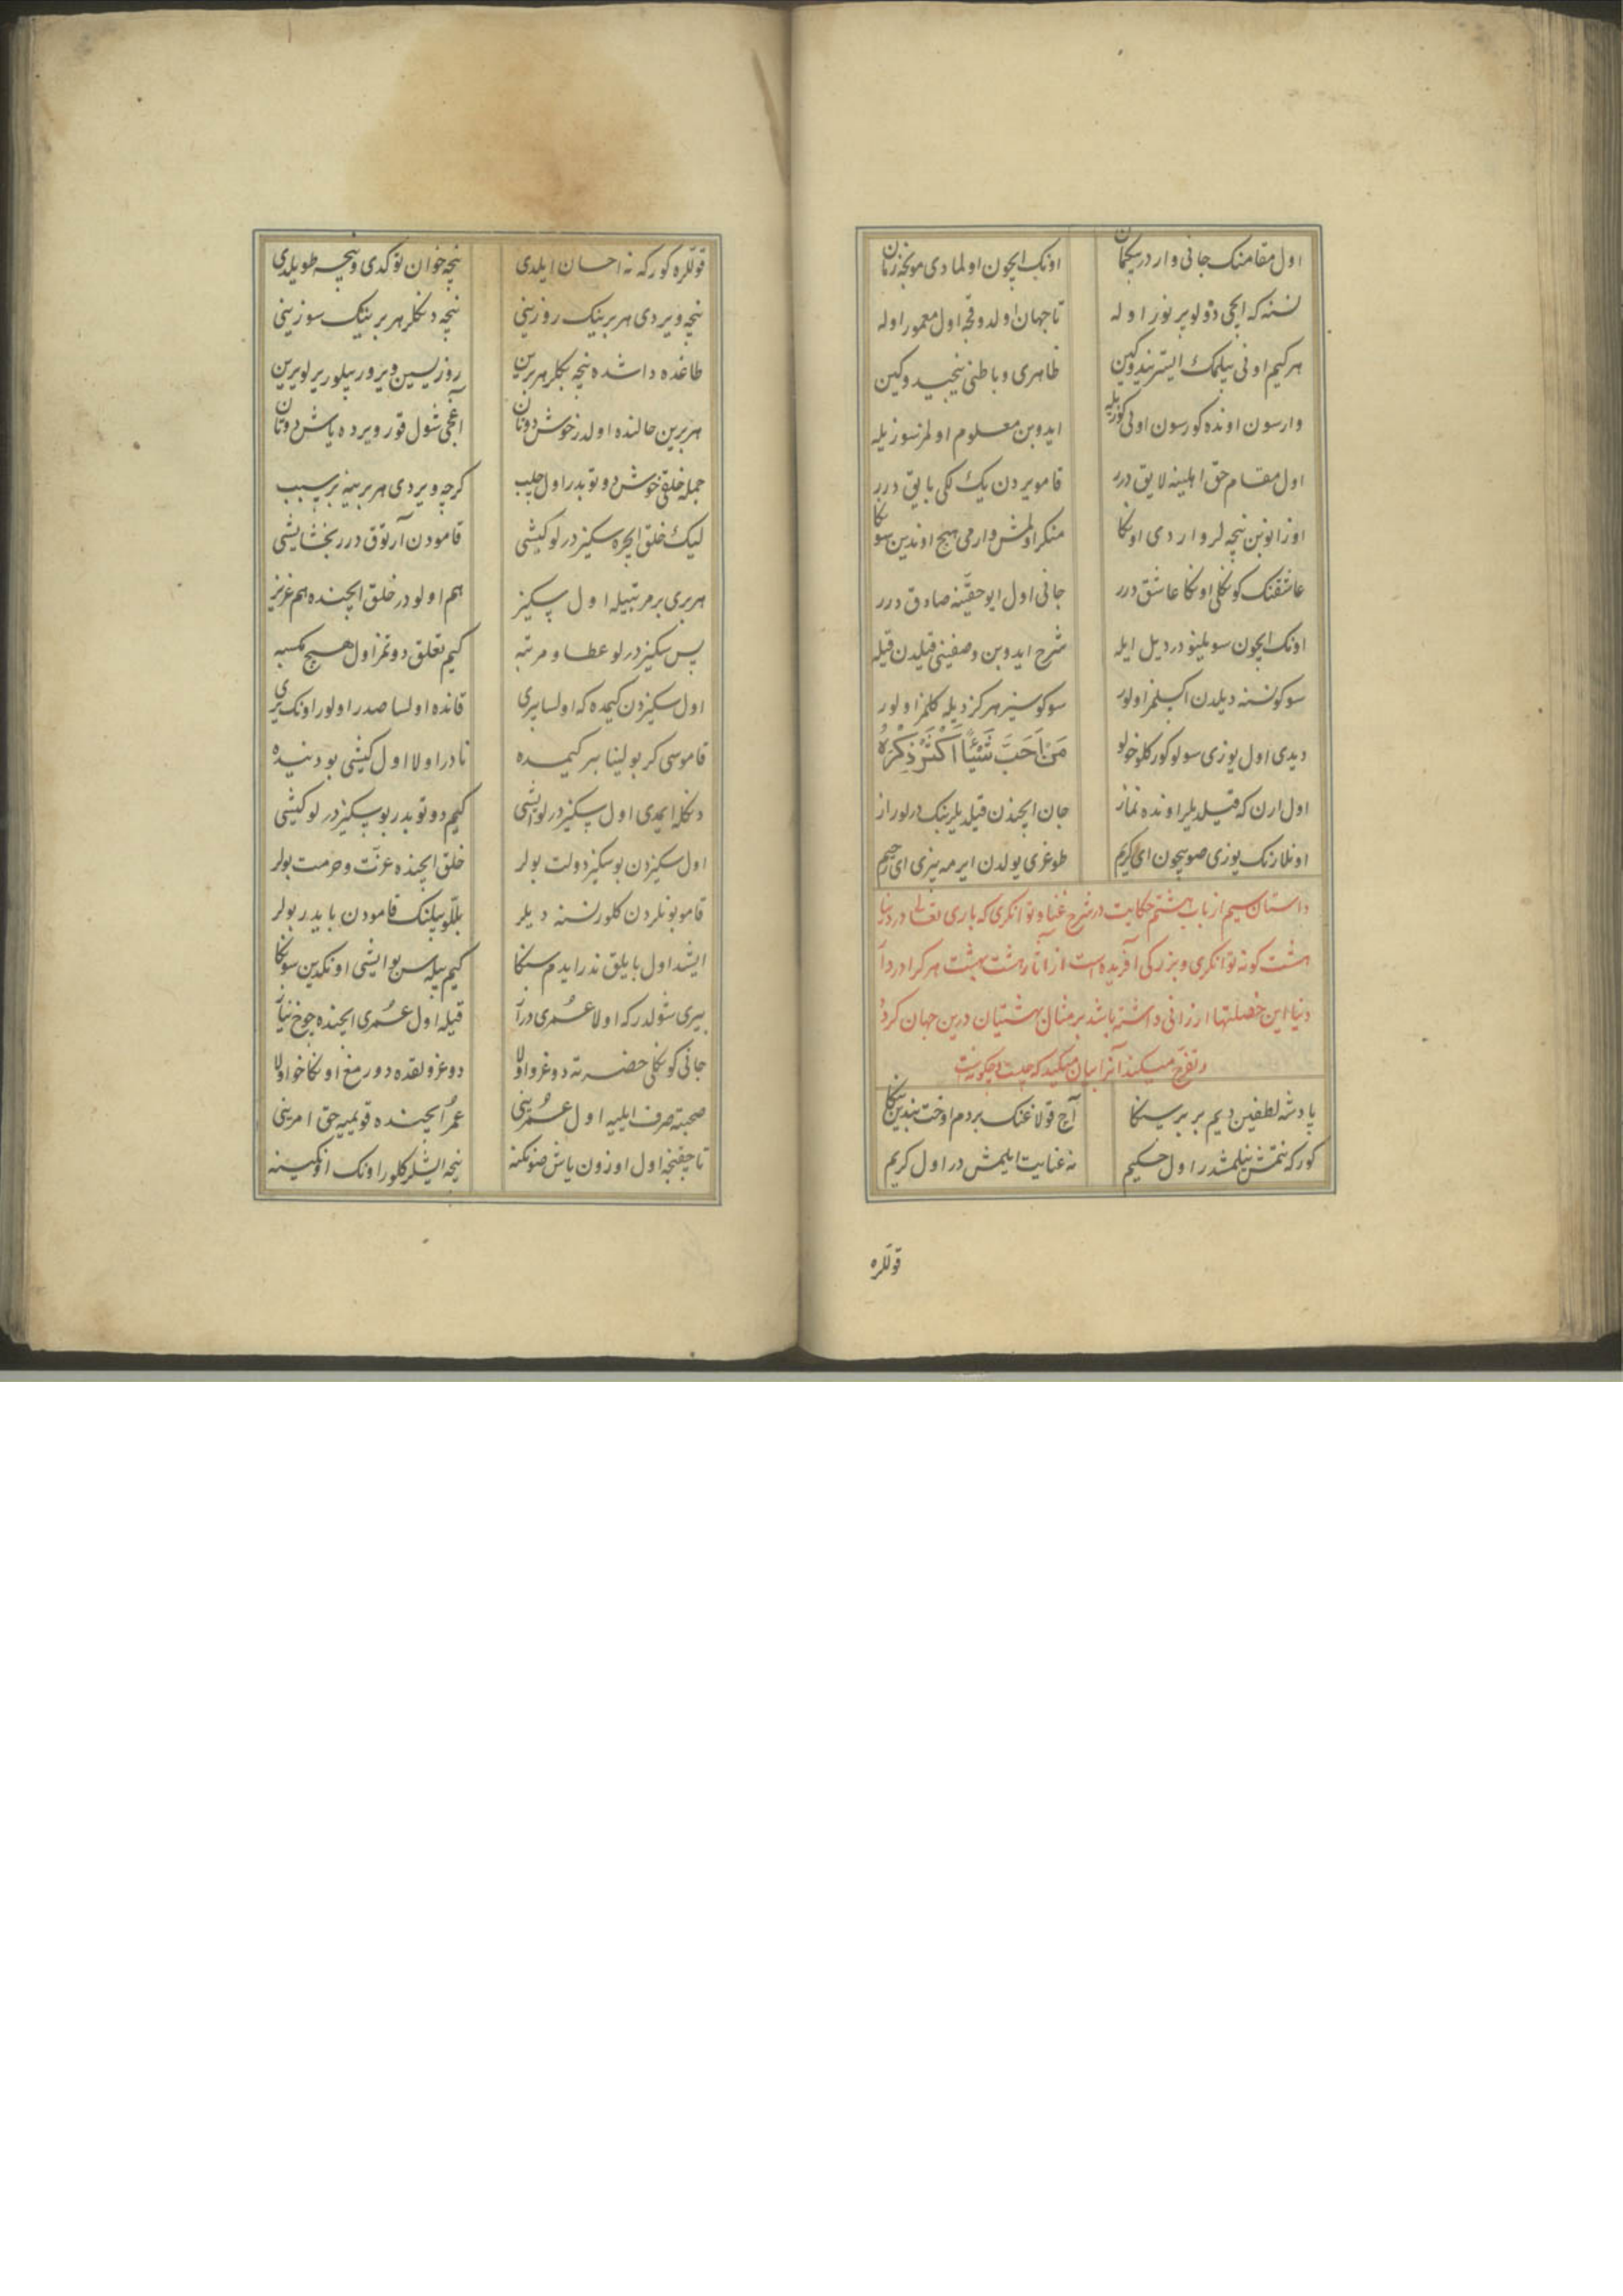 اول مقامنک جانی وار در بیکمان اونک ایچون اولمادی مونجه زمان
نسنه که ایچی دولو پر نور اوله تا جهان اولدوقجه اول معمور اوله
هر کیم اونی بیلمک ایستر نیدوکین ظاهری و باطنی نیجیدوکین
وارسون اونده کورسون اونی کوزیله ایدوبن معلوم اولمز سوزیله
اول مقام حق اهلینه لایق درر قامو یردن یک لکی بایق درر
اوزانوبن نیجه لر واردی اونکا منکر اولمش وارمی هیچ اوندین سونکا
عاشقنک کونکلی اونکا عاشق درر جانی اول ایو حقینه صادق درر
اونک ایچون سویلینو در دیل ایله شرح ایدوبن وصفینی قیلدن قیله
سوکو نسنه دیلدن اکسلمز اولور سوکوسیز هرکز دیله کلمز اولور
دیدی اول یوزی سولو کورکلو خولو مَنْ اَحَبَّ شَیْئًا اَکْثَرَ ذِکْرَهُ
اول ارن که قیلدیلر اونده نماز جان ایچندن قیلدیلر بنک درلو راز
اونلارنک یوزی صویچون ای کریم طوغری یولدن ایرمه بیزی ای رحیم
داستان سیم از باب هشتم حکایت در شرح غنا و توانکری که باری تعالی در دنیا
هشت کونه توانکری و بزرکی آفریده است از آثار هشت بهشت هر کرا در دار
دنیا این خصلتها ارزانی داشته باشد بر مثال بهشتیان درین جهان کردد
و تفرّج میکند آنرا بیان میکید که چیست و چکونه است
پادشه لطفین دیم بر بر سنکا آچ قولاغنک بر دم اوخت بندین ینکا
کور که نتمش نیلمشدر اول حکیم نه عنایت ایلمش در اول کریم
قوللره
قوللره کور که نه احسان ایلدی نیجه خوان توکدی و نیجه طویلدی
نیجه ویردی هر برینک روزینی نیجه دنکلر هر برینک سوزینی
طاغده داشده نیجه بکلر هر برین روزیسین ویرور بیلور یرلو یرین
هر برین حالنده اولدر خوش دوتان آجی شول قورو یرده یاش دوتان
جمله خلقی خوش دوتوبدر اول چلب کرچه ویردی هر برینه بر سبب
لیک خلق ایچره سکیز درلو کیشی قامودن آرتوق درر بخشایشی
هر بری بر مرتبیله اول سکیز هم اولو در خلق ایچنده هم عزیز
پس سکیز درلو عطا و مرتبه کیم تعلق دوتمز اول هیچ کسبه
اول سکیزدن کیمده که اولسا بری قانده اولسا صدر اولور اونک یری
قاموسی کر بولینا بیر کیمسده نادر اولا اول کیشی بو دنیده
دنکله ایمدی اول سکیز درلو ایشی کیم دوتوبدر بو سکیز درلو کیشی
اول سکیزدن بو سکیز دولت بولر خلق ایچنده عزّت و حرمت بولر
قامو بونلردن کلور نسنه دیلر بللو بیلنک قامودن بایدر بولر
ایشد اول بایلق ندر ایدم سنکا کیم بیله سن بو ایشی اونکدین سونکا
بیری شولدر که اولا عُمری دراز قیله اول عُمری ایچنده چوخ نیاز
جانی کونکلی حضرته دوغرو اولا دوغرولقده دورمغ اونکا خو اولا
صحبته صرف ایلیه اول عُمرینی عُمر ایچنده قویمیه حق امرینی
تا چقنجه اول اوزون یاش صونکنه نیجه ایشلر کلور اونک اونکینه